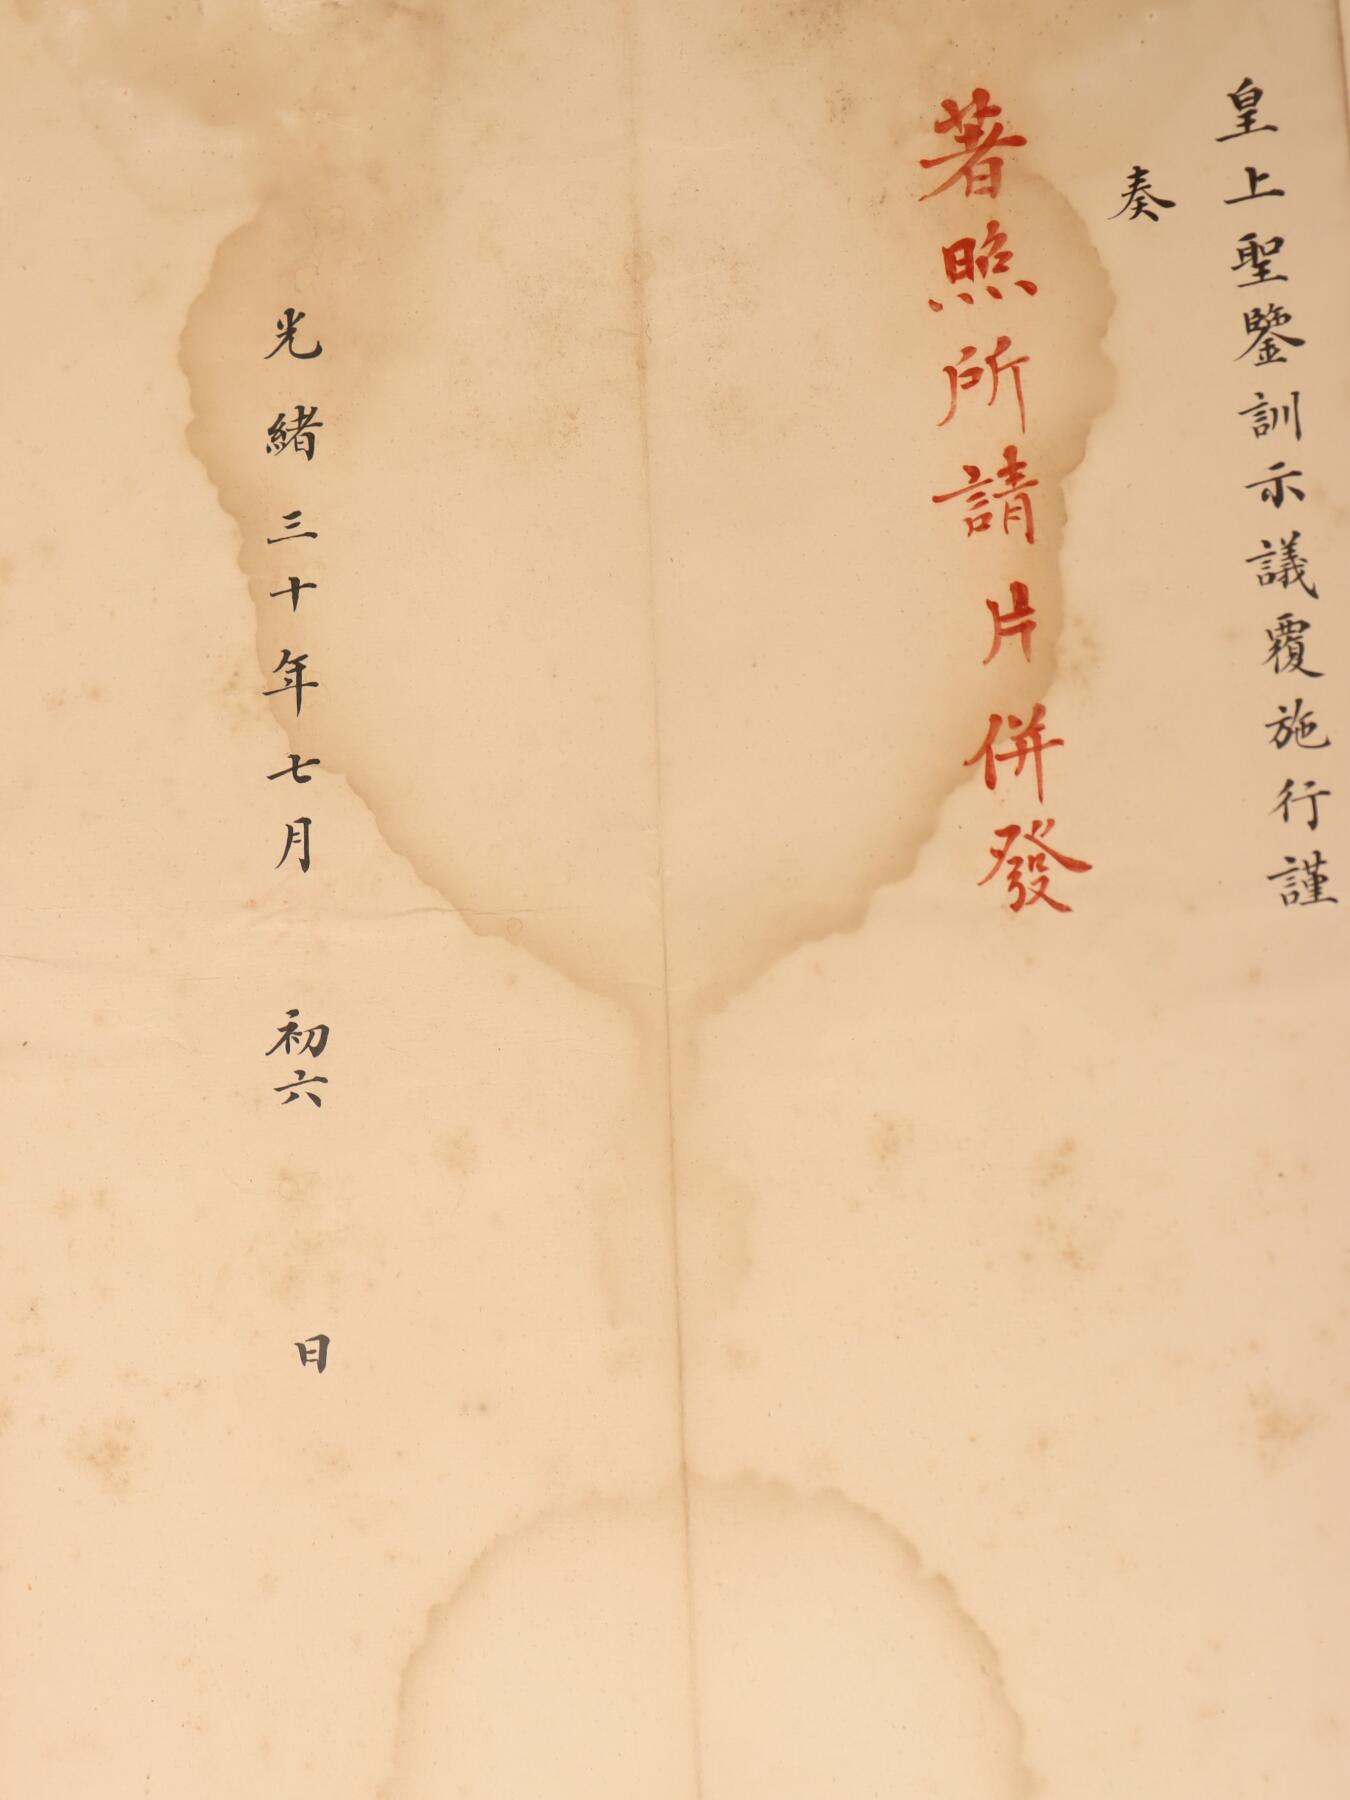 皇上聖鑒訓示議覆施行謹
奏
著照所請片併發
光緒三十年七月初六日